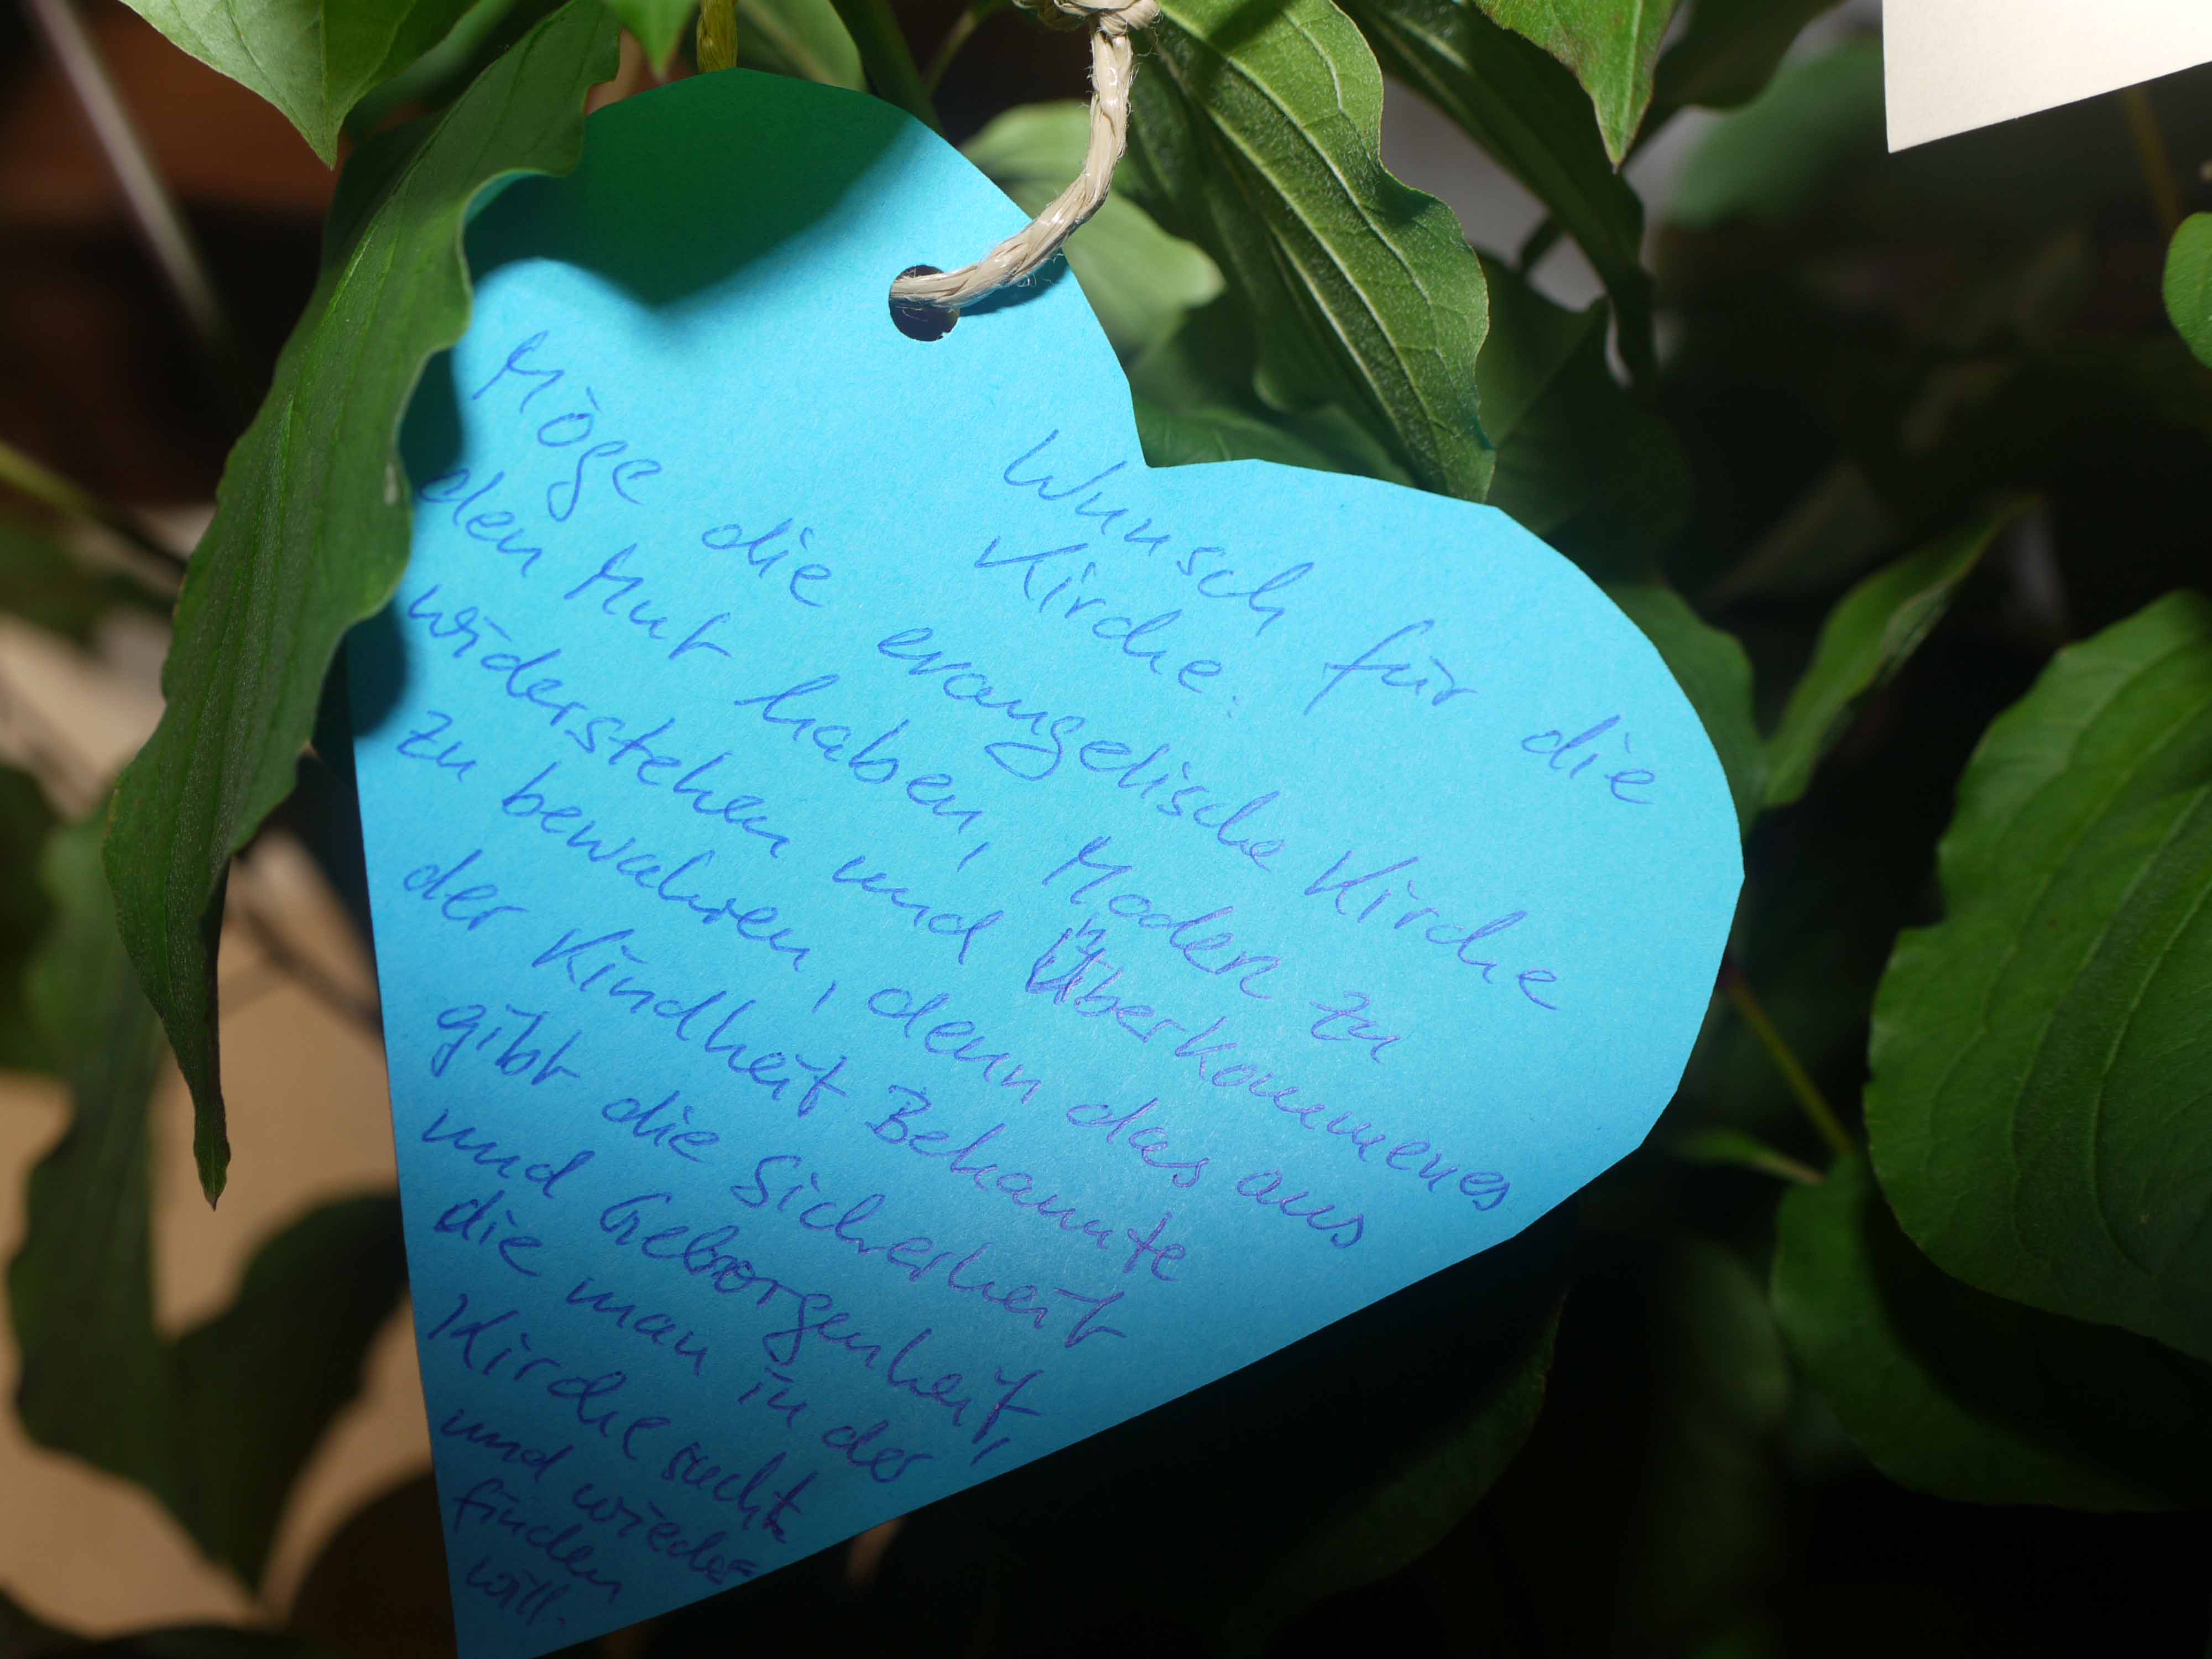 Wunsch für die
Kirche:
Möge die evangelische Kirche
den Mut haben, Moden zu
widerstehen und Überkommenes
zu bewahren, denn das aus
der Kindheit Bekannte
gibt die Sicherheit
und Geborgenheit,
die man in der
Kirche sucht
und wieder-
finden
will.